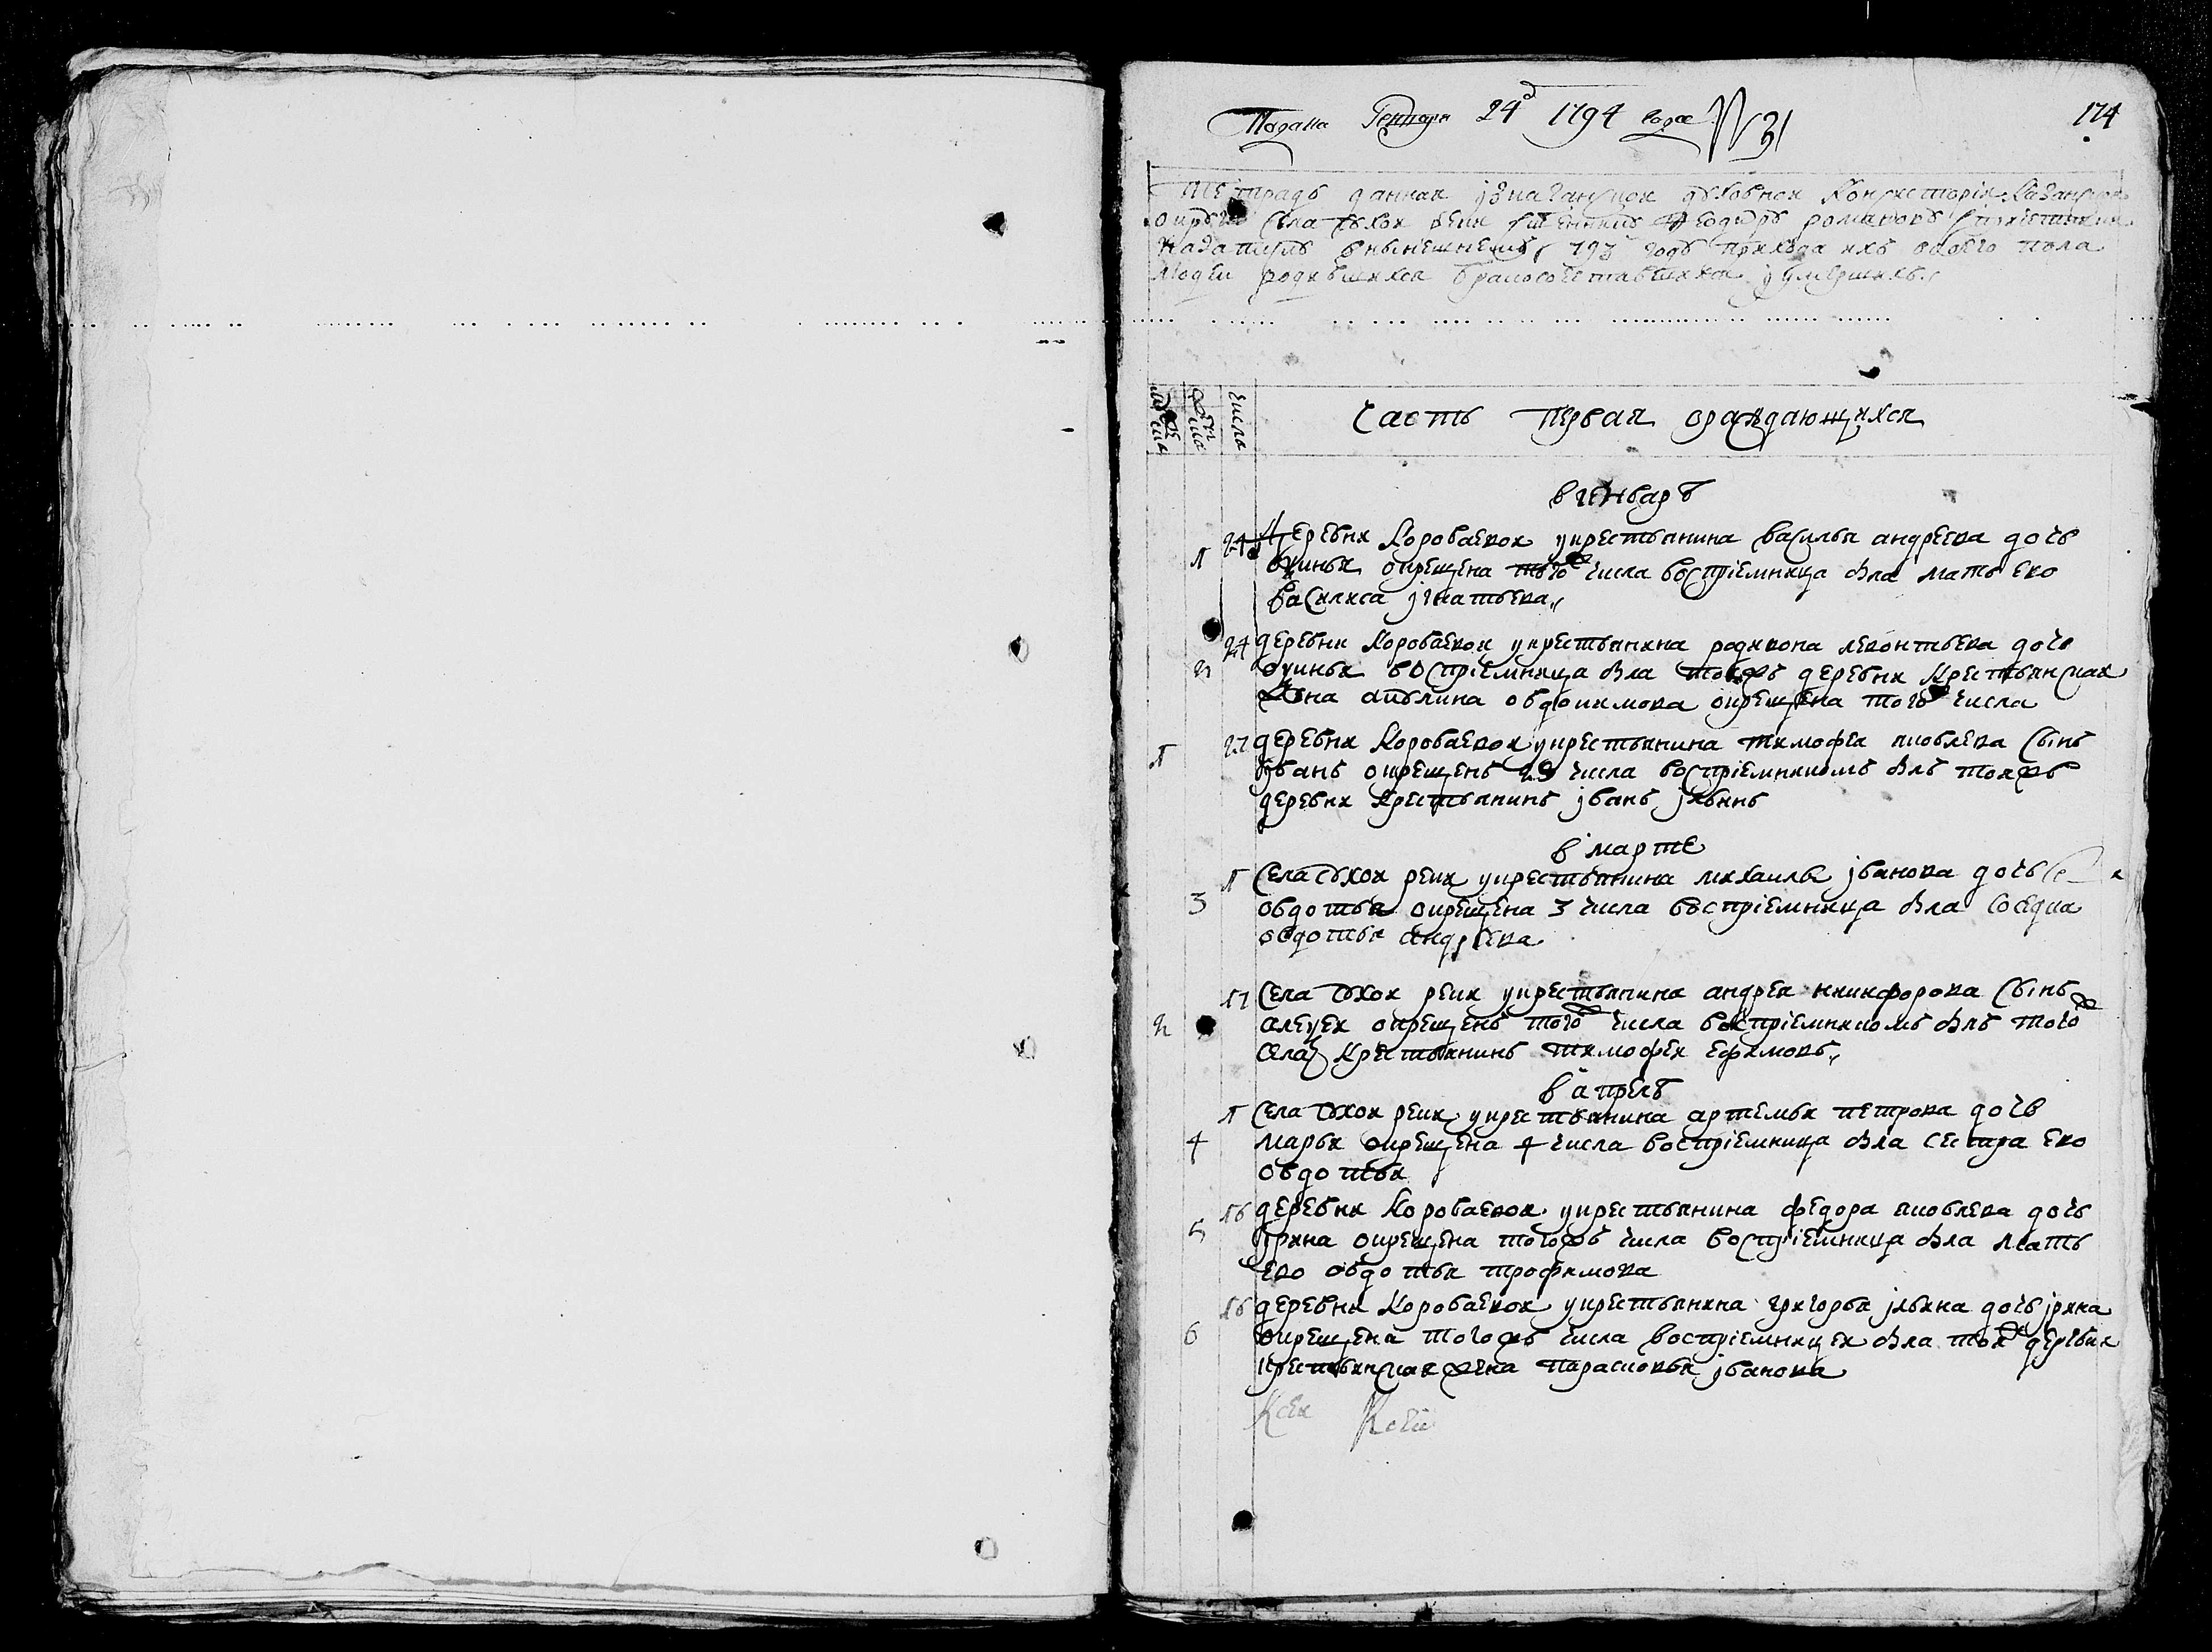 Подана Генваря 24д 1794 года № 31
174
Тетрадь данная ізказанской духовной Консисторіи Казанской
округи села Сухой реки священнику Феодору романову спричетники
Надапись внынешнемъ 793 годѣ прихода ихъ обоего пола
людей родившихся бракосочетавшихся іумершихъ
число
часть первая ораждающихся
в генварѣ
1 24 Деревни Короваевой укрестьянина василья андреева дочь
окинья окрещена того же числа воспріемница была мать ево
василиса ігнатьева
2 24 деревни Короваевой укрестьянина родивона левонтьева дочь
окинья воспріемница была тоежъ деревни крестьянская
жена овдокимова окрещена того числа
1 27 деревни Короваевой укрестьянина тимофея яковлева сынъ
іванъ окрещенъ 29 числа воспріемникомъ былъ тоежъ
деревни крестьянинъ іванъ ільинъ
в марте
1 Села Сухой реки укрестьянина михаилы іванова дочь
3 овдотья окрещена 3 числа воспріемница была соседка
овдотья андреева
17 Села Сухой реки укрестьянина андрея никифорова сынъ
2 алексей окрещенъ того же числа воспріемникомъ былъ того же
села крестьянинъ тимофей ефимовъ
в апрелѣ
1 Села Сухой реки укрестьянина артемья петрова дочь
4 марья окрещена 4 числа воспріемница была сестра ево
овдотья
16 деревни Короваевой укрестьянина федора яковлева дочь
5 ірина окрещена тогожъ числа воспріемница была мать
ево овдотья трофимова
16 деревни Короваевой укрестьянина григорья ільина дочь ірина
6 окрещена тогожъ числа воспріемницей была той же деревни
крестьянская жена парасковья іванова